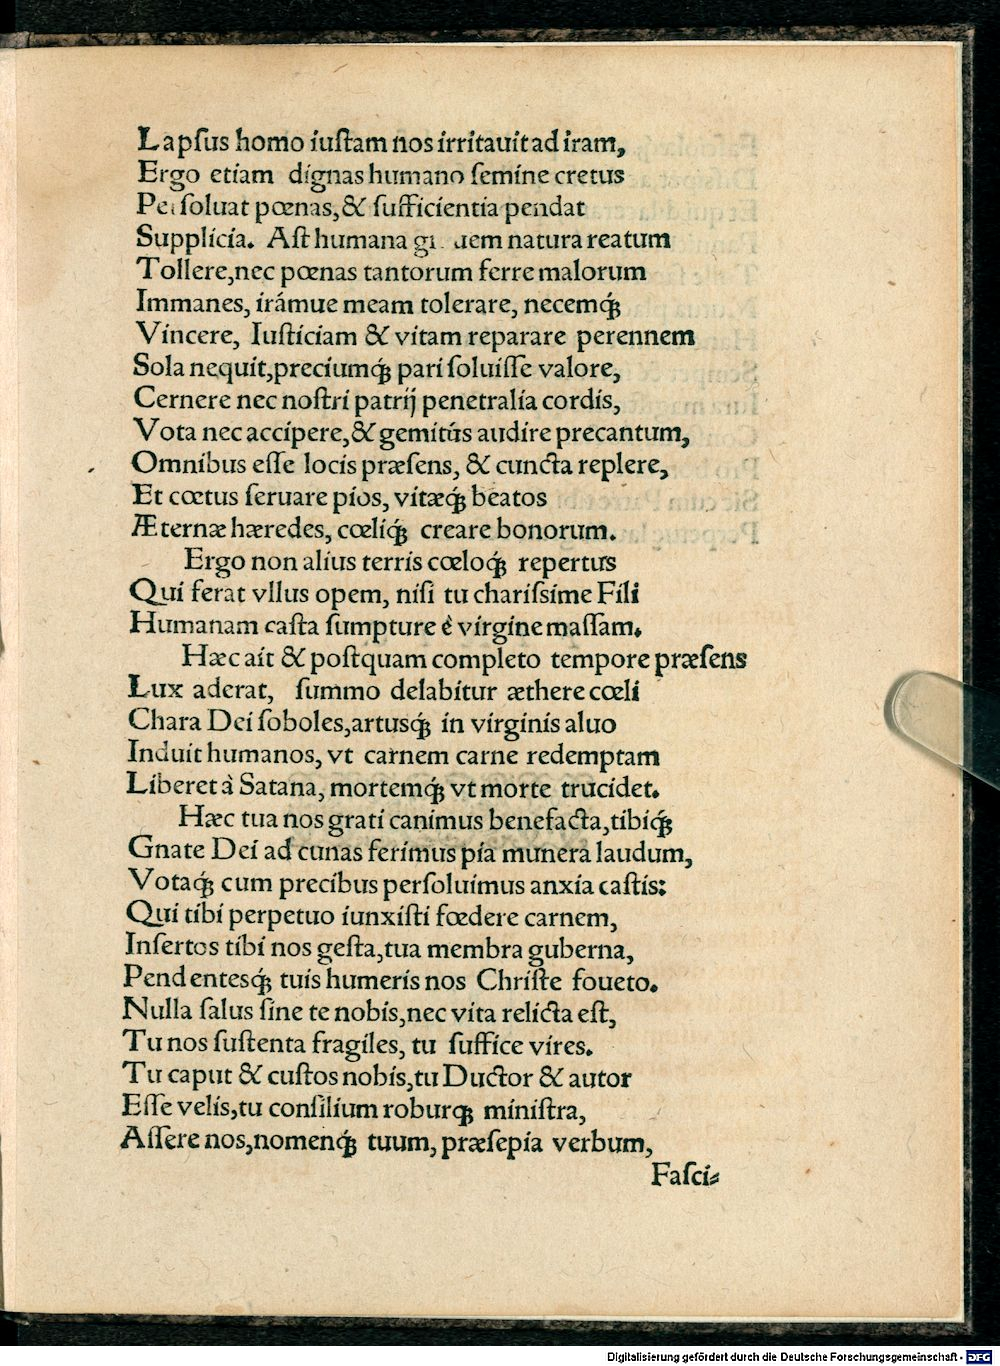 Lapſus homo iuſtam nos irritauit ad iram,
Ergo etiam dignas humano ſemine cretus
Perſoluat pœnas, & ſufficientia pendat
Supplicia. Aſt humana natura reatum
Tollere, nec pœnas tantorum ferre malorum
Immanes, irámue meam tolerare, necemq́ꝫ
Vincere, Iuſticiam & vitam reparare perennem
Sola nequit, preciumq́ꝫ pari ſoluiſſe valore,
Cernere nec noſtri patrij penetralia cordis,
Vota nec accipere, & gemitús audire precantum,
Omnibus eſſe locis præſens, & cuncta replere,
Et cœtus ſeruare pios, vitæq́ꝫ beatos
Æternæ hæredes, cœliq́ꝫ creare bonorum.
Ergo non alius terris cœloq́ꝫ repertus
Qui ferat vllus opem, niſi tu chariſsime Fili
Humanam caſta ſumpture è virgine maſſam.
Hæc ait & poſtquam completo tempore præſens
Lux aderat, ſummo delabitur æthere cœli
Chara Dei ſoboles, artusq́ꝫ in virginis aluo
Induit humanos, vt carnem carne redemptam
Liberet à Satana, mortemq́ꝫ vt morte trucidet.
Hæc tua nos grati canimus benefacta, tibiq́ꝫ
Gnate Dei ad cunas ferimus pia munera laudum,
Votaq́ꝫ cum precibus perſoluimus anxia caſtis:
Qui tibi perpetuo iunxiſti fœdere carnem,
Inſertos tibi nos geſta, tua membra guberna,
Pendentesq́ꝫ tuis humeris nos Chriſte foueto.
Nulla ſalus ſine te nobis, nec vita relicta eſt,
Tu nos ſuſtenta fragiles, tu ſuffice vires.
Tu caput & cuſtos nobis, tu Ductor & autor
Eſſe velis, tu conſilium roburqꝫ miniſtra,
Aſſere nos, nomenq́ꝫ tuum, præſepia verbum,
Faſci⸗
Digitalisierung gefördert durch die Deutsche Forschungsgemeinschaft - DFG